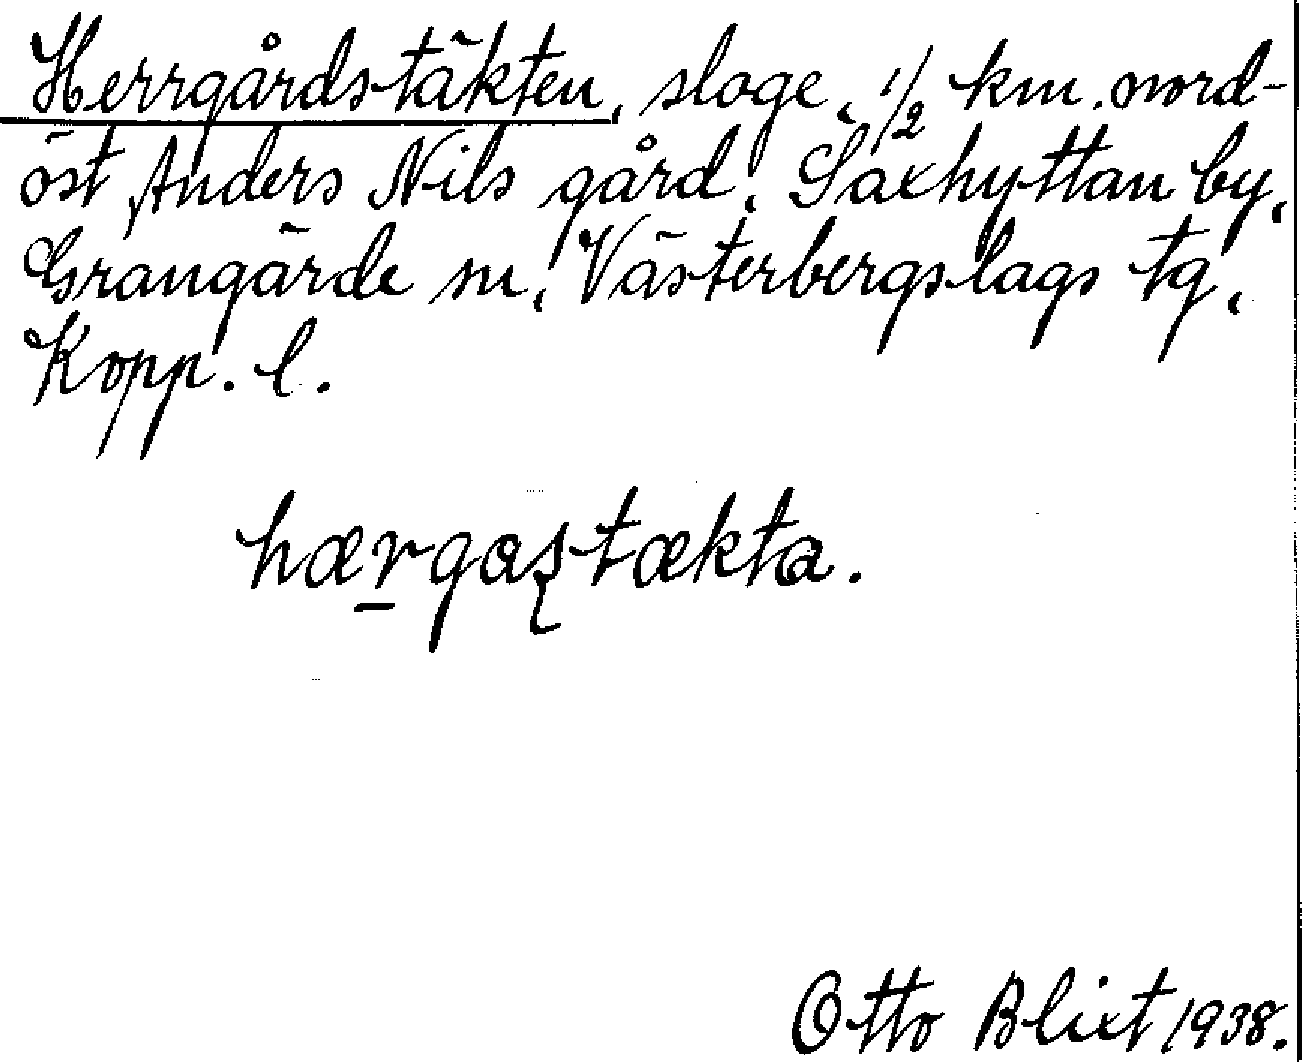 Herrgårdstäkten, sloge, 1/2 km. nord-
öst Anders Nils gård, Saxhyttan by,
Grangärde sn, Västerbergslags tg,
Kopp. l.
hærgaʂtækta.
Otto Blixt 1938.